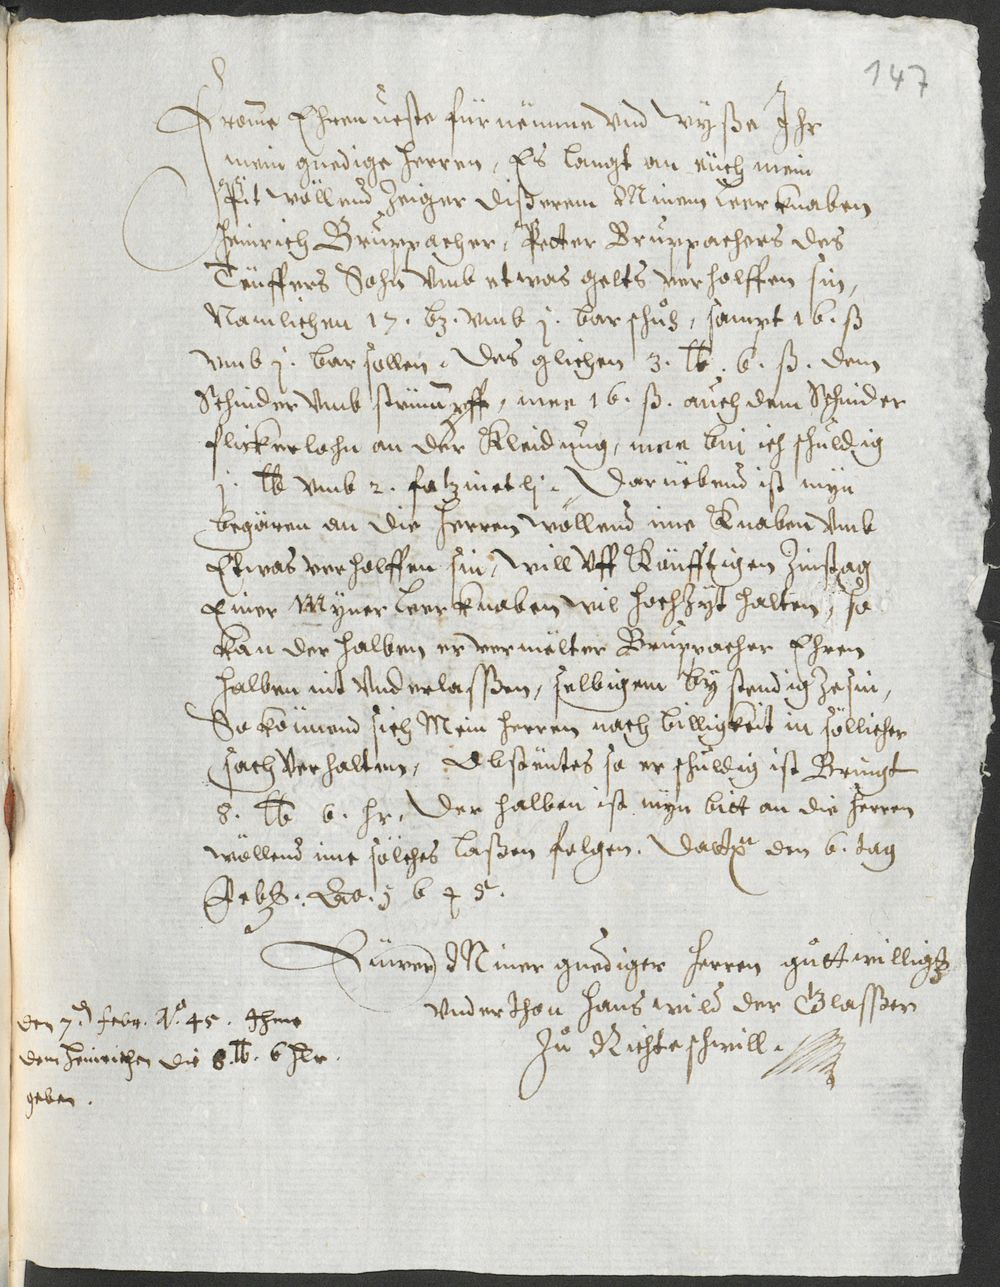 147
Frome Ehrenueste fürnëmme vnd wyße Ihr
mein gnedige Herren, Es langt an eüch mein
Pit wöllend Zeiger dißerem Minem Leerknaben
Heinrich Bruppacher, Petter Bruppachers des
Teüffers Sohn vmb etwas gelts verholffen sin,
Namlichen 17. bz. vmb j. bar schuh, sampt 16. ß
vmb j. bar sollen. Des glichen 3. lb. 6. ß. dem
Schnider vmb strümpff, mee 16. ß. auch dem Schnider
flickerlohn an der Kleidung, mee bin ich schuldig
j. lb vmb 2. fatznetlj. Darnebend ist myn
begären an die Herren wöllend ime Knaben vmb
Etwas verholffen sin, will vff Künfftigen Zinstag
Einer Myner Leerknaben wil hochzyt halten, so
kan derhalben er vermelter Bruppacher Ehren
halben nit vnderlasßen, selbigem by stendig ze sin,
So könnend sich Mein Herren nach billigkeit in söllicher
sach verhalten, so er schuldig ist Bringt
8. lb 6. hr. Der halben ist myn bitt an die Herren
wöllend ime sölches laßen folgen. Datum den 6. tag
Feb. Ao. 1645.
Eüwer Miner gnediger Herren guttwilligster
vnderthon Hans wild der Glasßer
Zu Richteschwill.
den 7. febr. Ao. 45. Ihme
dem Heinrichen die 8. lb. 6 hlr.
geben.